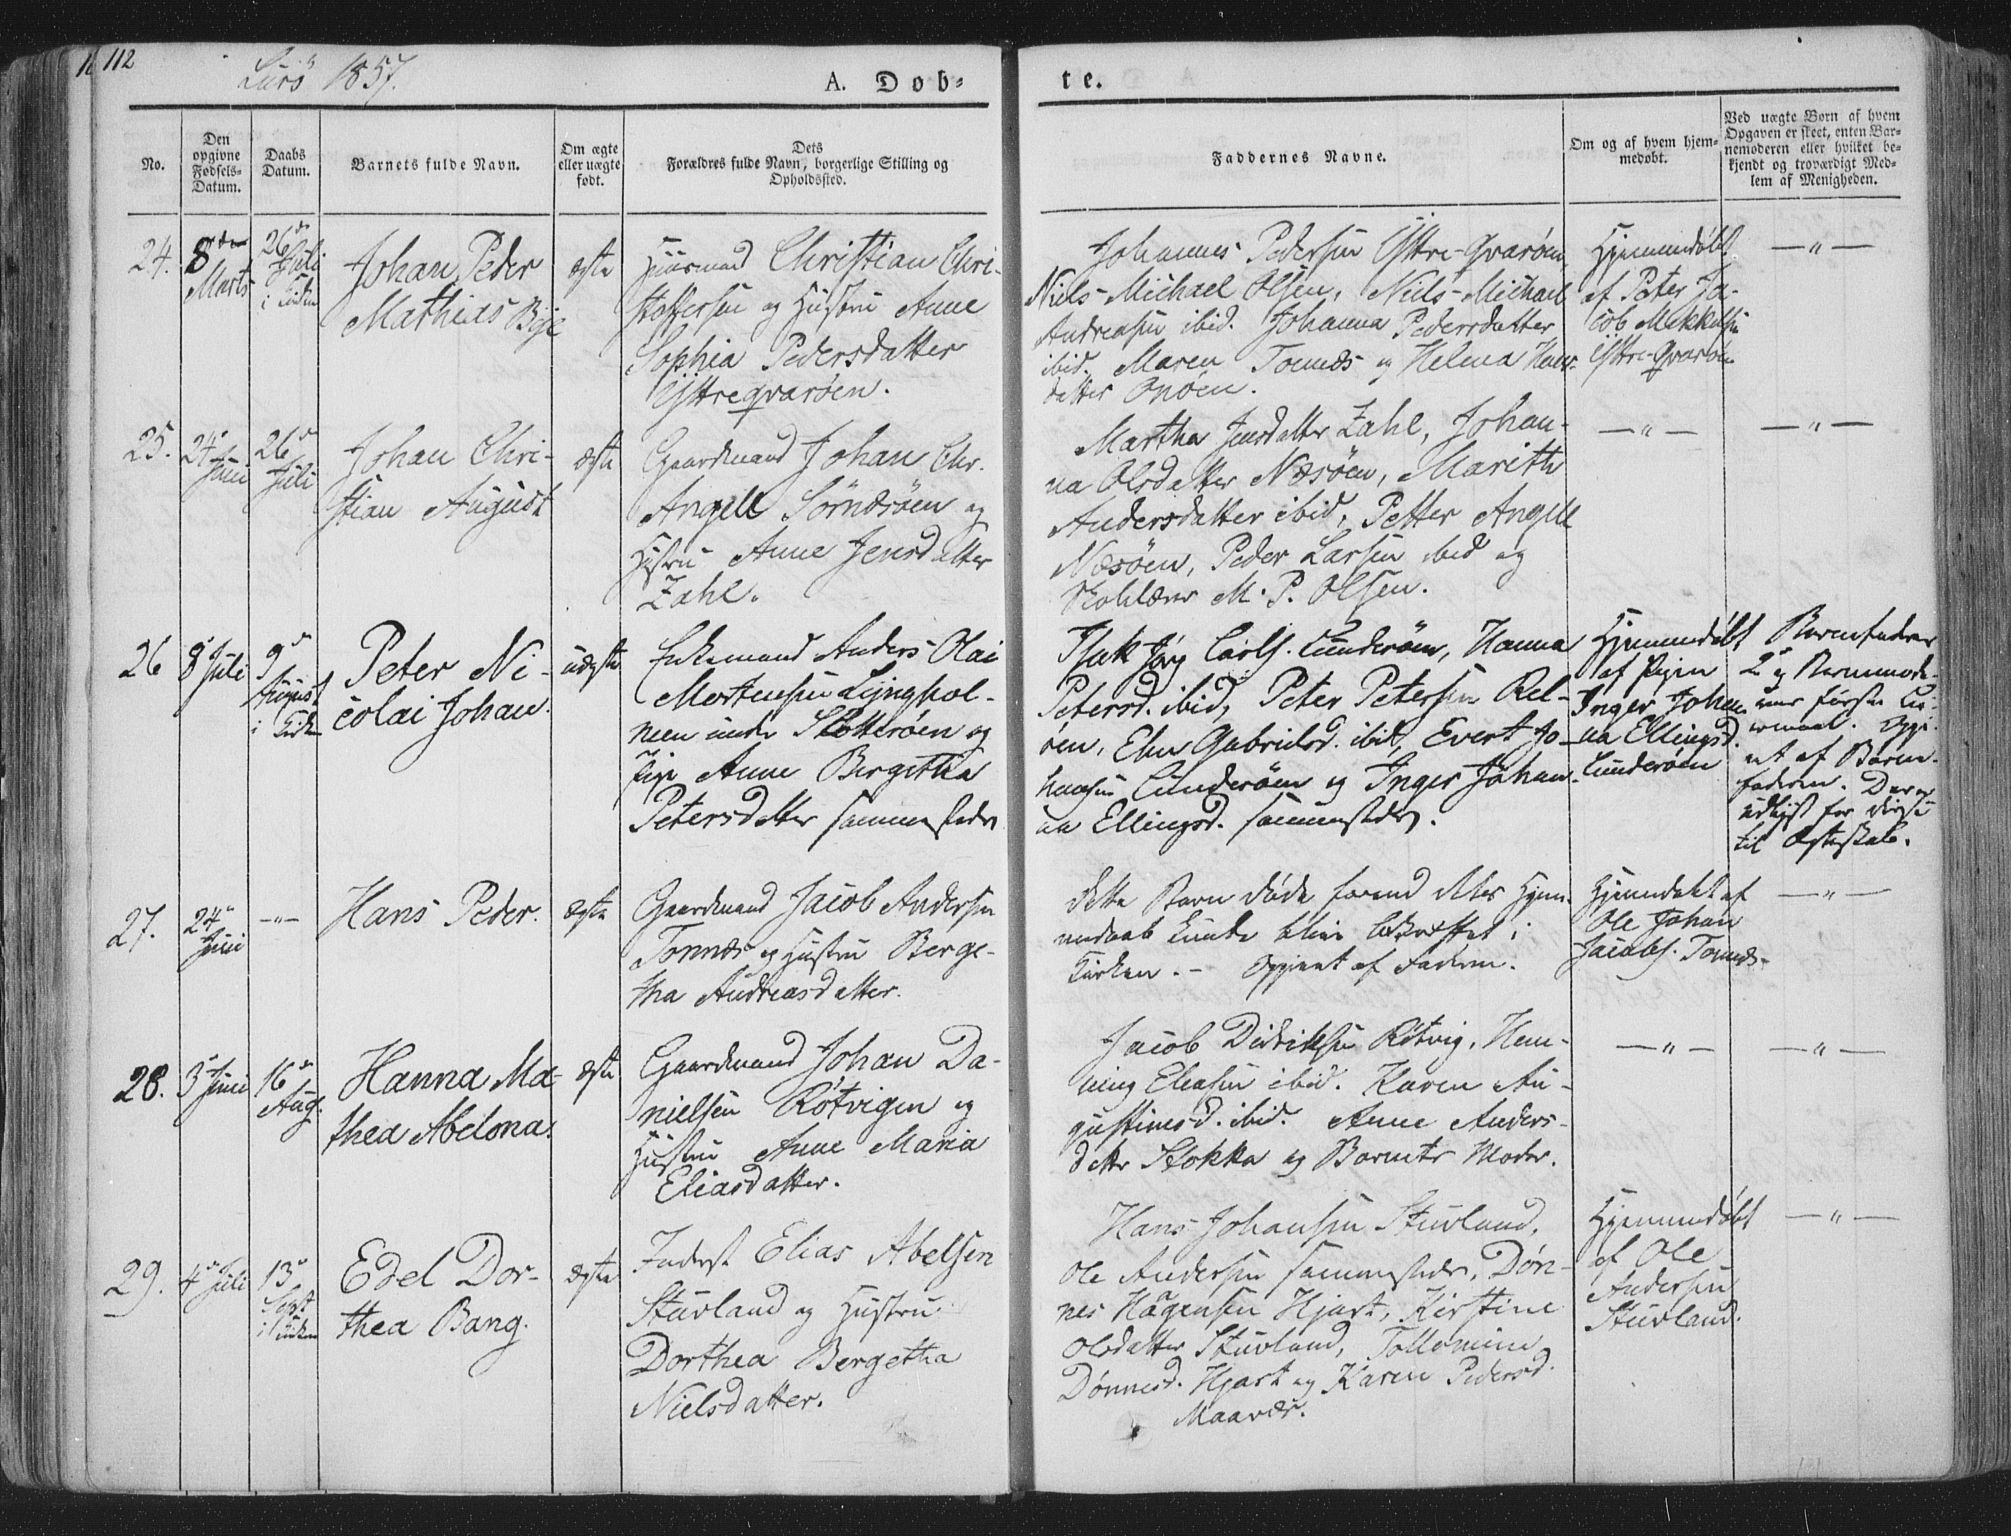 112
Lurö 1857.
A. Døb-
te.
No.
Den opgivne Fødsels-Datum.
Daabs Datum.
Barnets fulde Navn.
Om ægte eller uægte født.
Dets Forældres fulde Navn, borgerlige Stilling og Opholdssted.
Faddernes Navne.
Om og af hvem hjem-
medøbt.
Ved uægte Børn af hvem
Opgaven er skeet, enten Bar-
nemoderen eller hvilket be-
kjendt og troværdigt Med-
lem af Menigheden.
24.
8de
Marts
26de
Juli
i Kirken
Johan Peder
Mathias
ægte
Huusmand Christian Chri-
stoffersen og Hustru Anne
Sophia Pedersdatter
Ystreqvarøen.
Johannes Pedersen Ystre-Qvarøen,
Niels-Michael Olsen, Niels-Michael
Andreasen ibid. Johanna Pedersdatter
ibid. Maren Tonnes og Helena Hans-
datter Onøen.
Hjemmedøbt
af Peter Ja-
cob Mikkelsen
Ystre-Qvarøen
—"—
25.
24
Juni
26
Juli
Johan Chri-
stian August
ægte
Gaardmand Johan Chr.
Angell Sörnæsøen og
Hustru Anne Jensdatter
Zahl.
Martha Jensdatter Zahl, Johan-
na Olsdatter Næsöen, Marith
Andersdatter ibid, Petter Angell
Næsöen, Peder Larsen ibid og
Skolelærer M. P. Olsen.
—"—
—"—
26
8 Juli
9
August
i Kirken
Peter Ni-
colai Johan.
uægte
Enkemand Anders Olai
Mortensen Lynghol-
men under Slotterøen og
Pige Anne Bergitha
Petersdatter sammesteds
Isak Jörg Carls. Lunderøen, Hanna
Petersd. ibid, Peter Petersen Rel-
øen, Elen Gabrielsd. ibid, Evert Jo-
hansen Lunderøen og Inger Johan-
na Ellingsd. sammesteds.
Hjemmedøbt
af Pigen
Inger Johan-
na Ellingsd.
Lunderøen
Barnefaderens
2 og Barnemode-
rens første Lei-
ermaal. Opgi-
vet af Barne-
faderen. Der er
udlyst for disse
til Ægteskab.
27.
24
Juni
—"—
Hans Peder.
ægte
Gaardmand Jacob Andersen
Tonnæs og Hustru Berge-
tha Andreasdatter.
Dette Barn døde forend dets Hjem-
medaab kunde blive bekræftet i
Kirken. - Opgivet af Faderen.
Hjemdøbt af
Ole Johan
Jacobs. Tonnæs-
—"—
28.
3 Juni
16
Aug.
Hanna Ma-
thea Abelona.
ægte
Gaardmand Johan Da-
nielsen Røtvigen og
Hustru Anne Maria
Eliasdatter.
Jacob Didriksen Røtvig, Hen-
ning Eliasen ibid. Karen Au-
gustinusd. ibid. Anne Anders-
datter Stokka og Barnets Moder.
—"—
—"—
29.
4 Juli
13
Sept
i Kirken
Edel Dor-
thea Bang.
ægte
Inderst Elias Abelsen
Stuvland og Hustru
Dorthea Bergetha
Nielsdatter.
Hans Johansen Stuvland,
Ole Andersen sammesteds, Døn-
nes Hågensen Hjart, Kirstine
Olsdatter Stuvland, Tollomine
Dønnesd. Hjart og Karen Pedersd.
Maavær.
Hjemmedøbt
af Ole
Andersen
Stuvland.
—"—